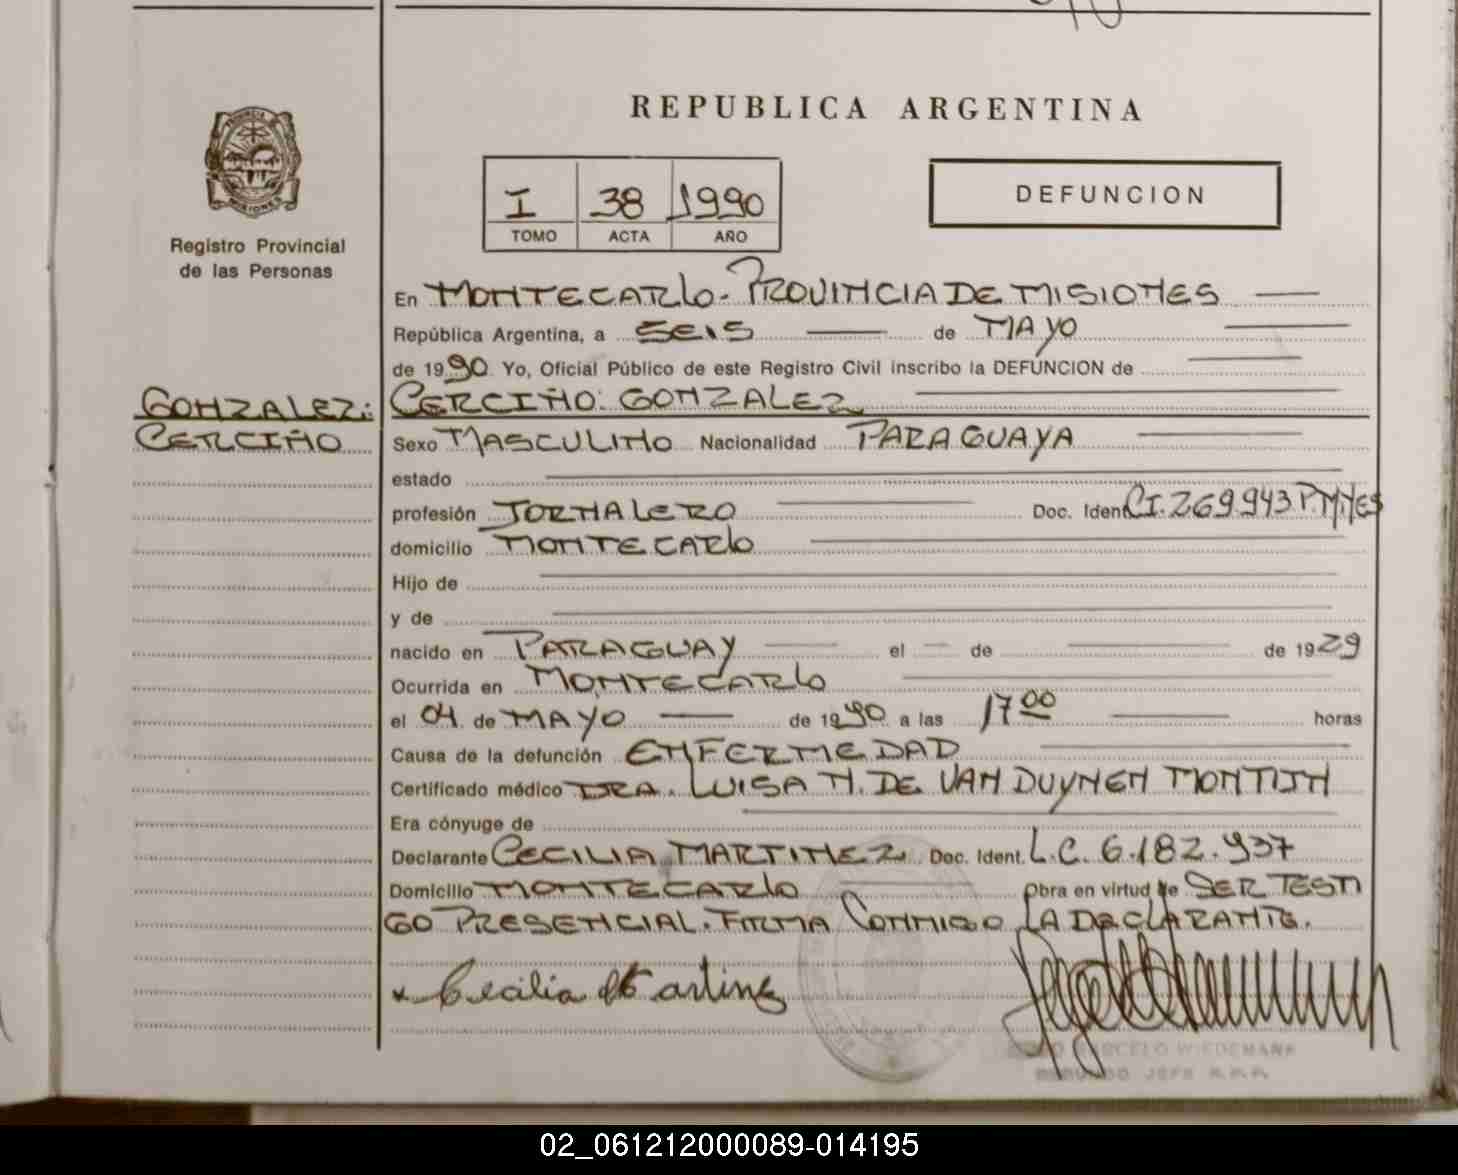 REPUBLICA ARGENTINA
I 38 1990
TOMO ACTA AÑO
DEFUNCION
Registro Provincial
de las Personas
En MONTECARLO - PROVINCIA DE MISIONES
República Argentina, a SEIS de MAYO
de 1990. Yo, Oficial Público de este Registro Civil inscribo la DEFUNCION de
GONZALEZ: CERCIÑO: GONZALEZ
CERCIÑO Sexo MASCULINO Nacionalidad PARAGUAYA
estado
profesión JORNALERO Doc. Ident. CI. 269.943 P. MNES
domicilio MONTECARLO
Hijo de
y de
nacido en PARAGUAY el de de 1929
Ocurrida en MONTECARLO
el 04 de MAYO de 1990 a las 17 00 horas
Causa de la defunción ENFERMEDAD
Certificado médico DRA. LUISA N. DE VAN DUYNEN MONTIJN
Era cónyuge de
Declarante CECILIA MARTINEZ Doc. Ident. L.C. 6.182.937
Domicilio MONTECARLO Obra en virtud de SER TESTI
GO PRESENCIAL. FIRMA CONMIGO LA DECLARANTE.
x Cecilia Martinez
MARCELO WIEDEMANN
JEFE R.P.P.
02_061212000089-014195